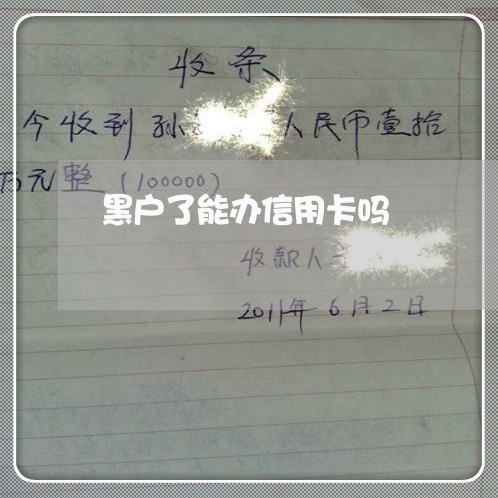 收条
今收到孙 人民币壹拾
万元整(100000)
黑户了能办信用卡吗
收款人
2011年6月2日